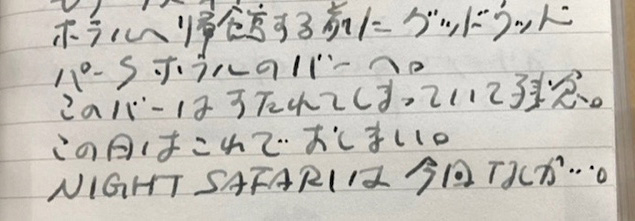 ホテルへ帰館する前に グッドウッド
パークホテルのバーへ。
このバーはすたれてしまっていて残念。
この日はこれでおしまい。
NIGHT SAFARIは 今回なしか…。